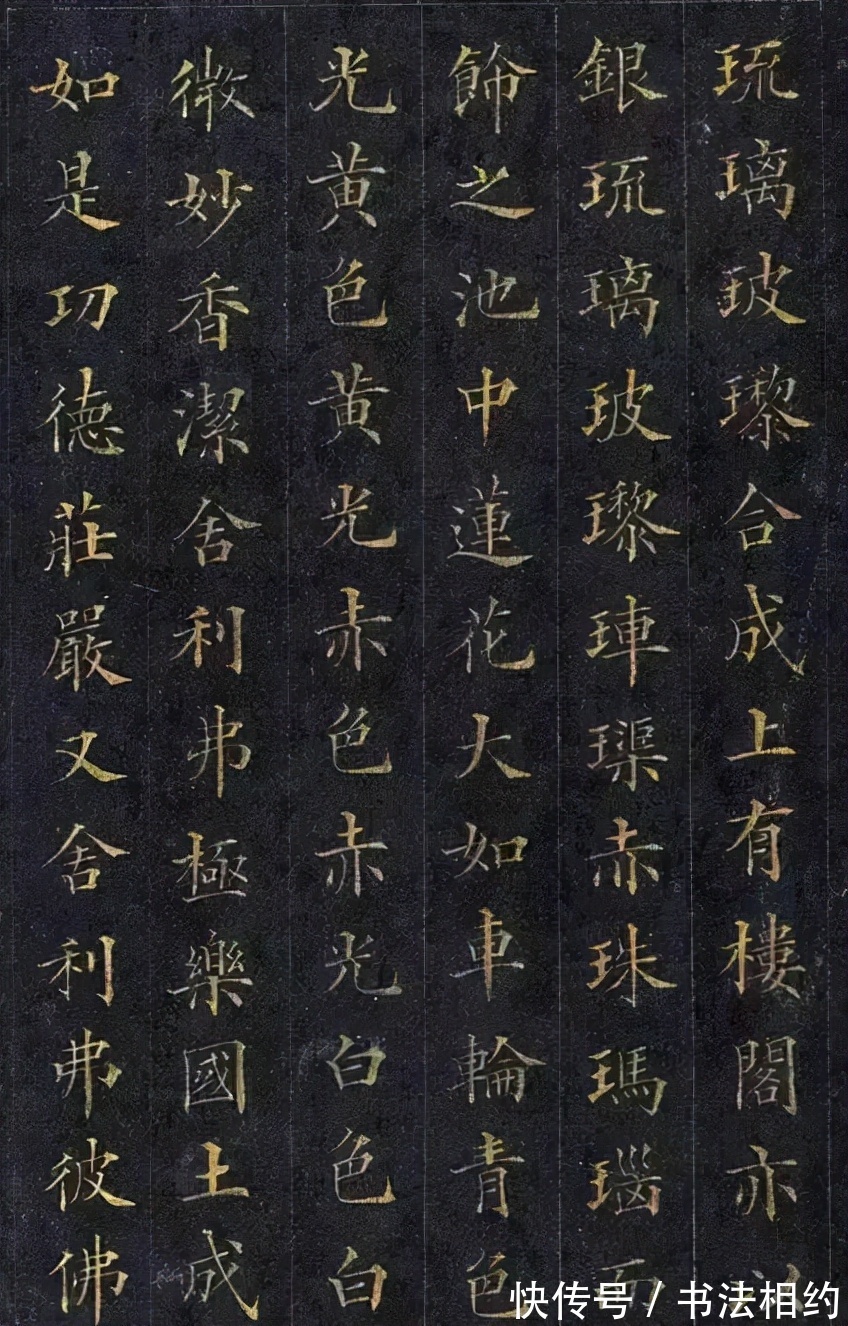 琉璃玻瓈合成上有樓閣亦以
銀琉璃玻瓈𤥭璖赤珠瑪瑙而
飾之池中蓮花大如車輪青色
光黄色黄光赤色赤光白色白
微妙香潔舍利弗極樂國土成
如是功德莊嚴又舍利弗彼佛
快传号 / 书法相约